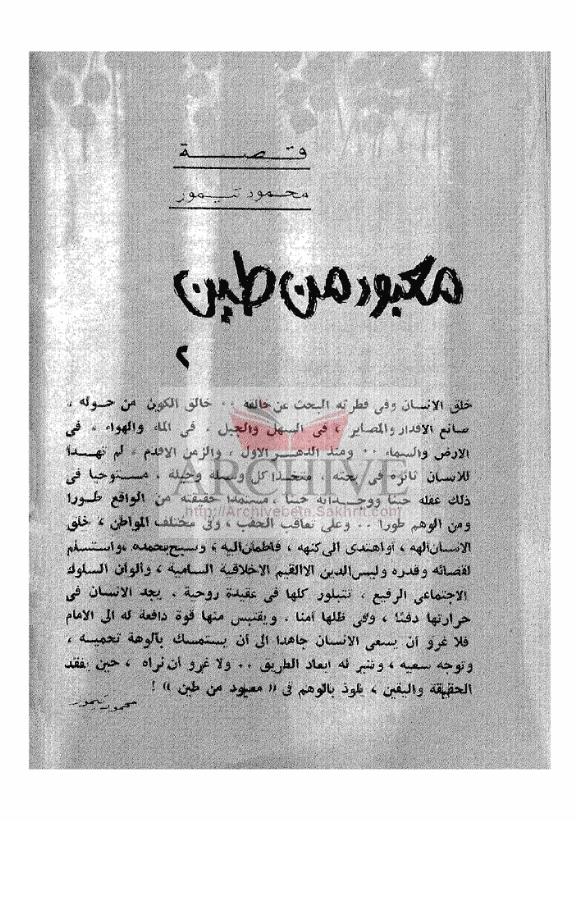 قصة
محمود تيمور
معبود من طين
٢
خلق الانسان وفى فطرته البحث عن خالقه .. خالق الكون من حوله ،
صانع الاقدار والمصاير ، فى السهل والجبل ، فى الماء والهواء ، فى
الارض والسماء .. ومنذ الدهر الاول ، والزمن الاقدم ، لم تهدا
للانسان ثائرة فى بحثه ، متخذا كل وسيلة وحيلة ، مستوحيا فى
ذلك عقله حينا ووجدانه حينا ، مستمدا حقيقته من الواقع طورا
ومن الوهم طورا .. وعلى تعاقب الحقب ، وفى مختلف المواطن ، خلق
الانسان الهه ، أو اهتدى الى كنهه ، فاطمأن اليه ، وسبح بحمده ، واستسلم
لقضائه وقدره وليس الدين الا القيم الاخلاقية السامية ، وألوان السلوك
الاجتماعى الرفيع ، تتبلور كلها فى عقيدة روحية ، يجد الانسان فى
حرارتها دفئا ، وفى ظلها أمنا . ويقتبس منها قوة دافعة له الى الامام
فلا غرو أن يسعى الانسان جاهدا الى أن يستمسك بألوهة تحميه ،
وتوجه سعيه ، وتنير له أبعاد الطريق .. ولا غرو أن نراه ، حين يفقد
الحقيقة واليقين ، يلوذ بالوهم فى « معبود من طين » !
محمود تيمور
ARCHIVE
http://Archivebeta.Sakhrit.com